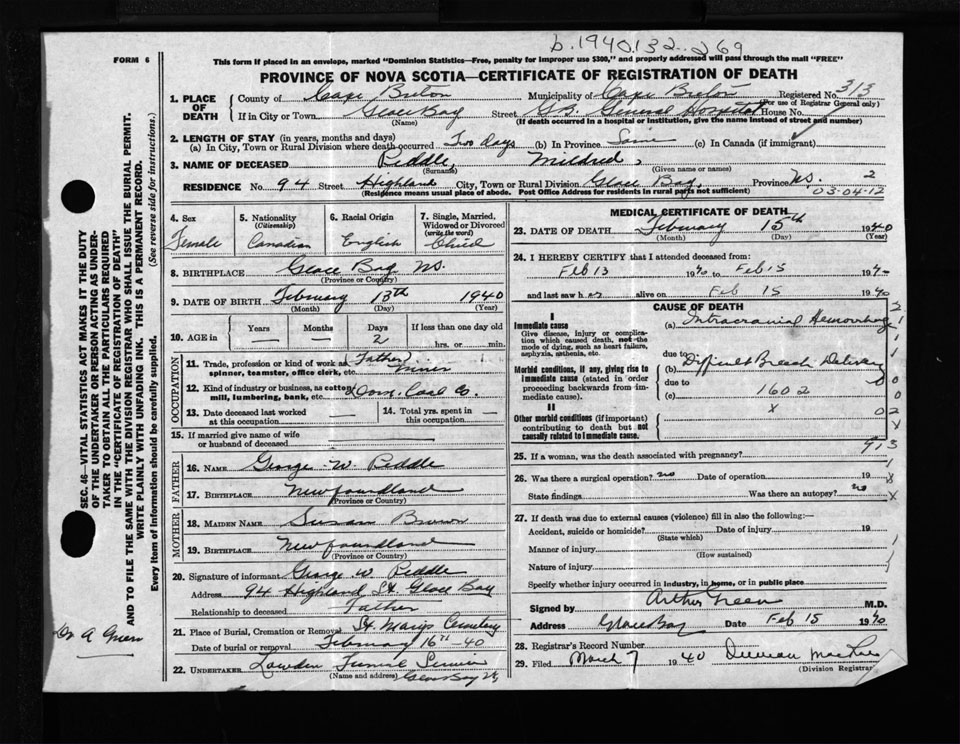 b.1940.132..269
FORM 6
This form if placed in an envelope, marked "Dominion Statistics—Free, penalty for improper use $300," and properly addressed will pass through the mail "FREE"
PROVINCE OF NOVA SCOTIA—CERTIFICATE OF REGISTRATION OF DEATH
1. PLACE OF DEATH
County of Cape Breton Municipality of Cape Breton Registered No. 313
(For use of Registrar General only)
If in City or Town Glace Bay Street G.B. General Hospital House No.
(Name) (If death occurred in a hospital or institution, give the name instead of street and number)
2. LENGTH OF STAY (in years, months and days)
(a) In City, Town or Rural Division where death occurred Two days (b) In Province Same (c) In Canada (if immigrant)
3. NAME OF DECEASED Peddle, Mildred,
(Surname) (Given name or names)
RESIDENCE No. 94 Street Highland City, Town or Rural Division Glace Bay, Province NS. 2
(Residence means usual place of abode. Post Office Address for residents in rural parts not sufficient) 03-04-12
4. Sex Female
5. Nationality (Citizenship) Canadian
6. Racial Origin English
7. Single, Married, Widowed or Divorced (write the word) Child
8. BIRTHPLACE Glace Bay NS.
(Province or Country)
9. DATE OF BIRTH February 13th 1940
(Month) (Day) (Year)
10. AGE in Years — Months — Days 2 If less than one day old hrs. or min.
OCCUPATION
11. Trade, profession or kind of work as spinner, teamster, office clerk, etc. Father Miner
12. Kind of industry or business, as cotton mill, lumbering, bank, etc. Dom Coal Co.
13. Date deceased last worked at this occupation —
14. Total yrs. spent in this occupation —
15. If married give name of wife or husband of deceased
FATHER
16. NAME George W. Peddle
17. BIRTHPLACE Newfoundland
MOTHER
18. MAIDEN NAME Susan Brown
19. BIRTHPLACE Newfoundland
(Province or Country)
20. Signature of informant George W Peddle
Address 94 Highland St. Glace Bay
Relationship to deceased Father
21. Place of Burial, Cremation or Removal St. Marys Cemetery
Date of burial or removal February 16th -40
22. UNDERTAKER Lowden Funeral Service
(Name and address) Glace Bay NS
MEDICAL CERTIFICATE OF DEATH
23. DATE OF DEATH February 15th 1940
(Month) (Day) (Year)
24. I HEREBY CERTIFY that I attended deceased from:
Feb 13 1940 to Feb 15 1940
and last saw her alive on Feb 15 1940
CAUSE OF DEATH
I
Immediate cause
Give disease, injury or complication which caused death, not the mode of dying, such as heart failure, asphyxia, asthenia, etc.
(a) Intracranial Hemorrhage
due to
Morbid conditions, if any, giving rise to immediate cause (stated in order proceeding backwards from immediate cause).
(b) Difficult Breach Delivery
due to
(c) 1602
II
Other morbid conditions (if important) contributing to death but not causally related to immediate cause.
x
25. If a woman, was the death associated with pregnancy?
26. Was there a surgical operation? no Date of operation 19
State findings Was there an autopsy? no
27. If death was due to external causes (violence) fill in also the following:—
Accident, suicide or homicide? Date of injury 19
(State which)
Manner of injury
(How sustained)
Nature of injury
Specify whether injury occurred in industry, in home, or in public place
Signed by Arthur Green M.D.
Address Glace Bay Date Feb 15 1940
28. Registrar's Record Number
29. Filed March 7 1940 Duncan
(Division Registrar)
SEC. 46—VITAL STATISTICS ACT MAKES IT THE DUTY
OF THE UNDERTAKER OR PERSON ACTING AS UNDER-
TAKER TO OBTAIN ALL THE PARTICULARS REQUIRED
IN THE "CERTIFICATE OF REGISTRATION OF DEATH"
AND TO FILE THE SAME WITH THE DIVISION REGISTRAR WHO SHALL ISSUE THE BURIAL PERMIT.
WRITE PLAINLY WITH UNFADING INK. THIS IS A PERMANENT RECORD.
Every item of Information should be carefully supplied. (See reverse side for instructions.)
Dr A Green